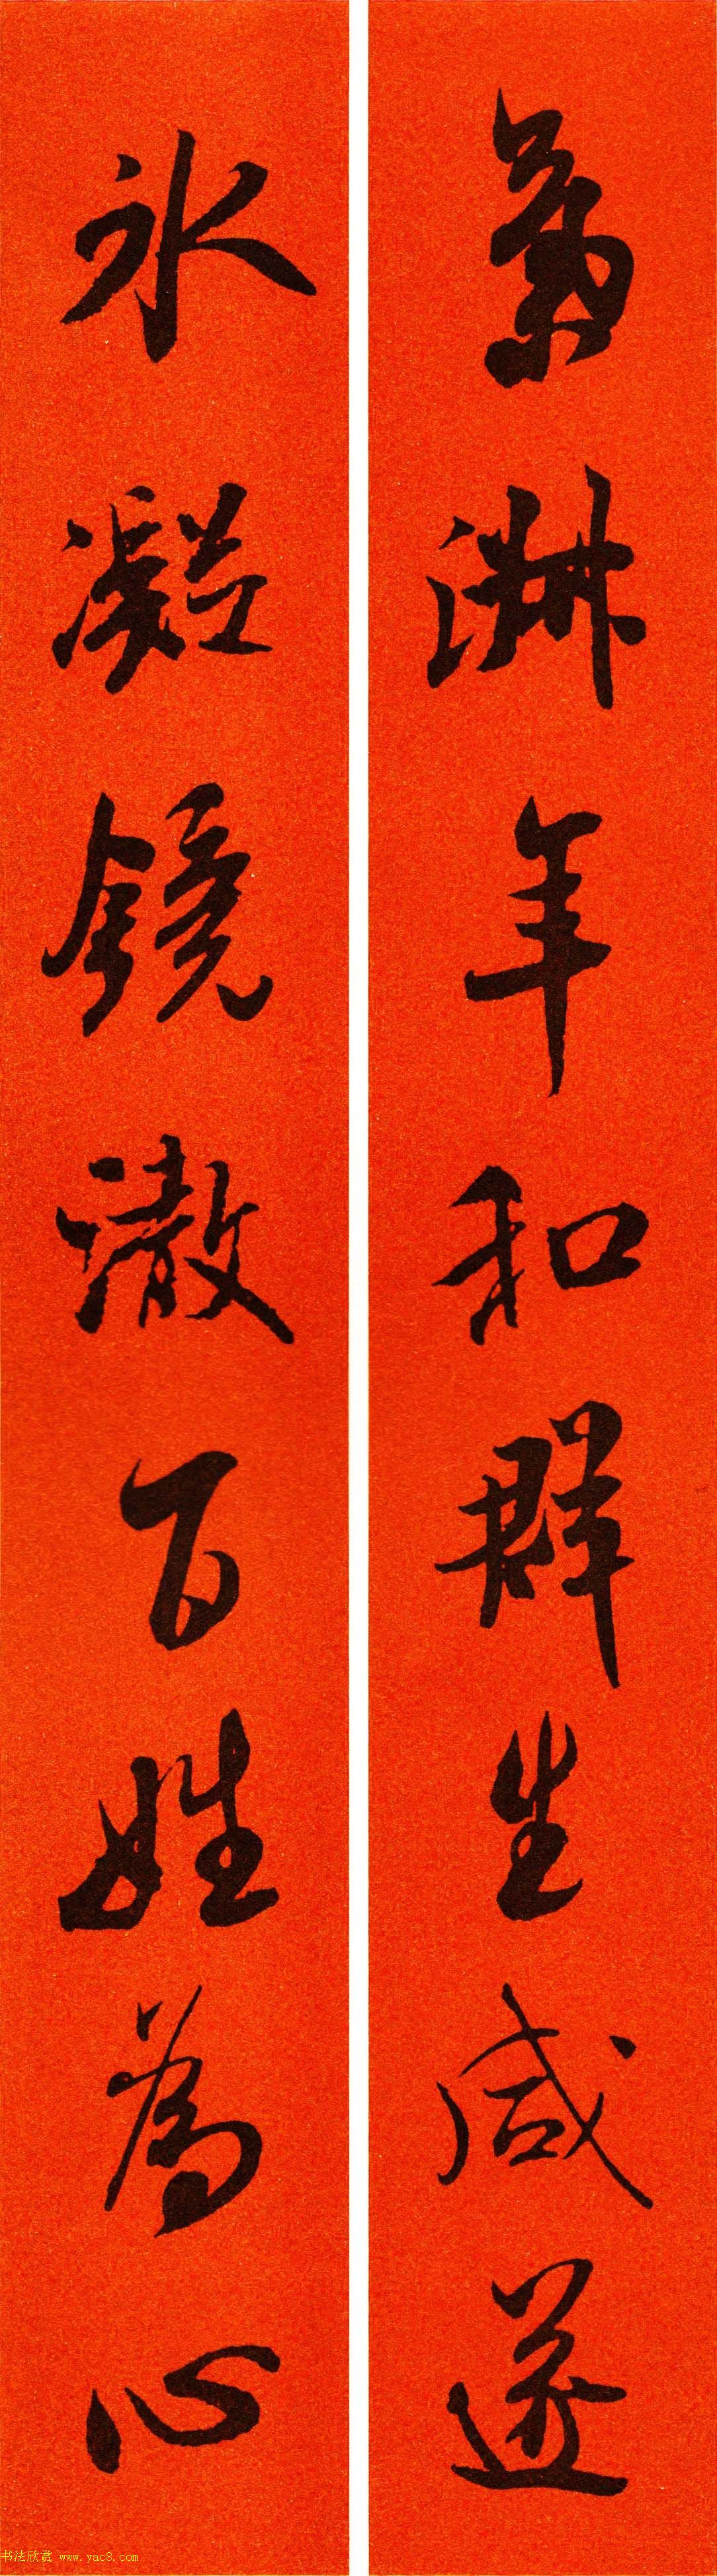 氣淑年和群生咸遂
氷凝鏡澈百姓為心
书法欣赏 www.yac8.com